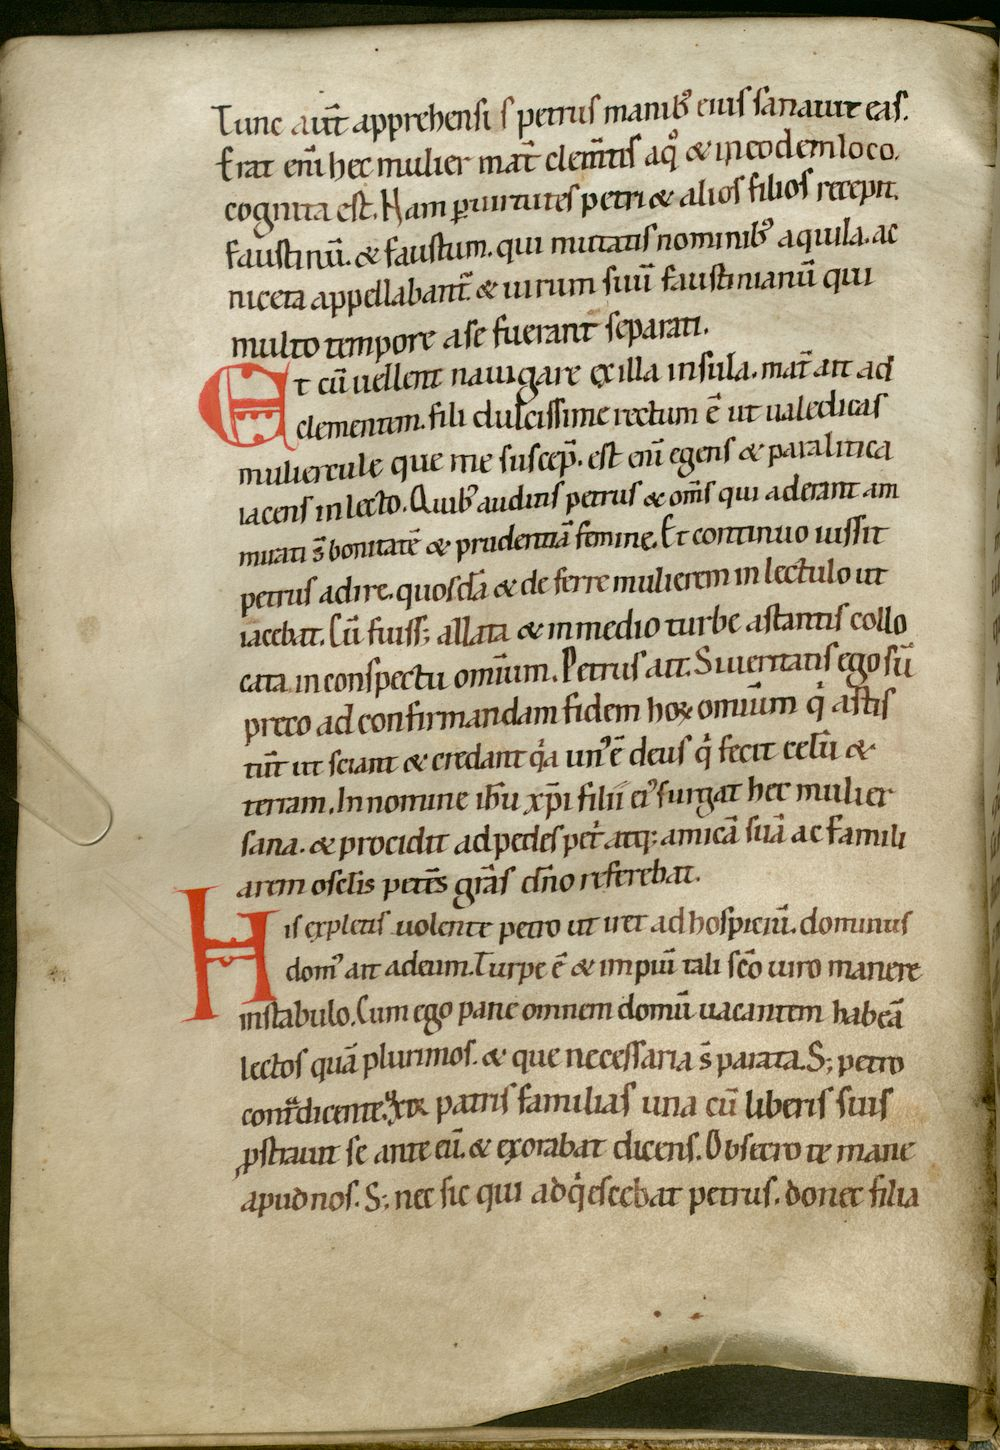 Tunc aut̄ apprehensis petrus manib; eius sanauit eas.
Erat eni̅ hec mulier mat̄ clem̄tis aqͦ & in eodem loco.
cognita est. Nam ꝑ uirtutes petri & alios filios recepit.
faustinū. & faustum. qui mutatis nominib; aquila. ac
niceta appellabant᷑. & uirum suū faustinianū qui
multo tempore ase fuerant separati.
Et cū uellent nauigare exilla insula. mat̄ ait ad
clementem. fili dulcissime rectum ē ut ualedicas
muliercule que me suscep̄. est eni̅ egens & paralitica
iacens in lecto. Quib; auditis petrus & om̄s qui aderant am
mirati s̄ bonitatē & prudentiā femine. Et continuo iussit
petrus adire. quosdā & de ferre mulierem in lectulo ut
iacebat. Cū fuiss; allata & inmedio turbe astantis collo
cata inconspectu omīum. Petrus ait. Si ueritatis ego sū
preco ad confirmandam fidem hoꝝ omīum qͥ astis
tūt ut sciant & credant qͥa unꝰ ē deus qͥ fecit celū &
terram. In nomine ih̄u xp̄i filii eiꝰ surgat hec mulier
sana. & procidit ad pedes pet̄ atq; amicā suā ac famili
arem osclis petēs grās dn̄o referebat.
His expletis uolente petro ut iret ad hospiciū. dominus
domꝰ ait ad eum. Turpe ē & impiū tali sc̄o uiro manere
instabulo. Cum ego pane omnem domū uacantem habeā
lectos quā plurimos. & que necessaria s̄ parata. S; petro
cont᷑dicente. uxor patris familias una cū liberis suis
ꝓstrauit se ante eū. & exorabat dicens. Obsecro te mane
apud nos. S; nec sic qui adqͥescebat petrus. donec filia